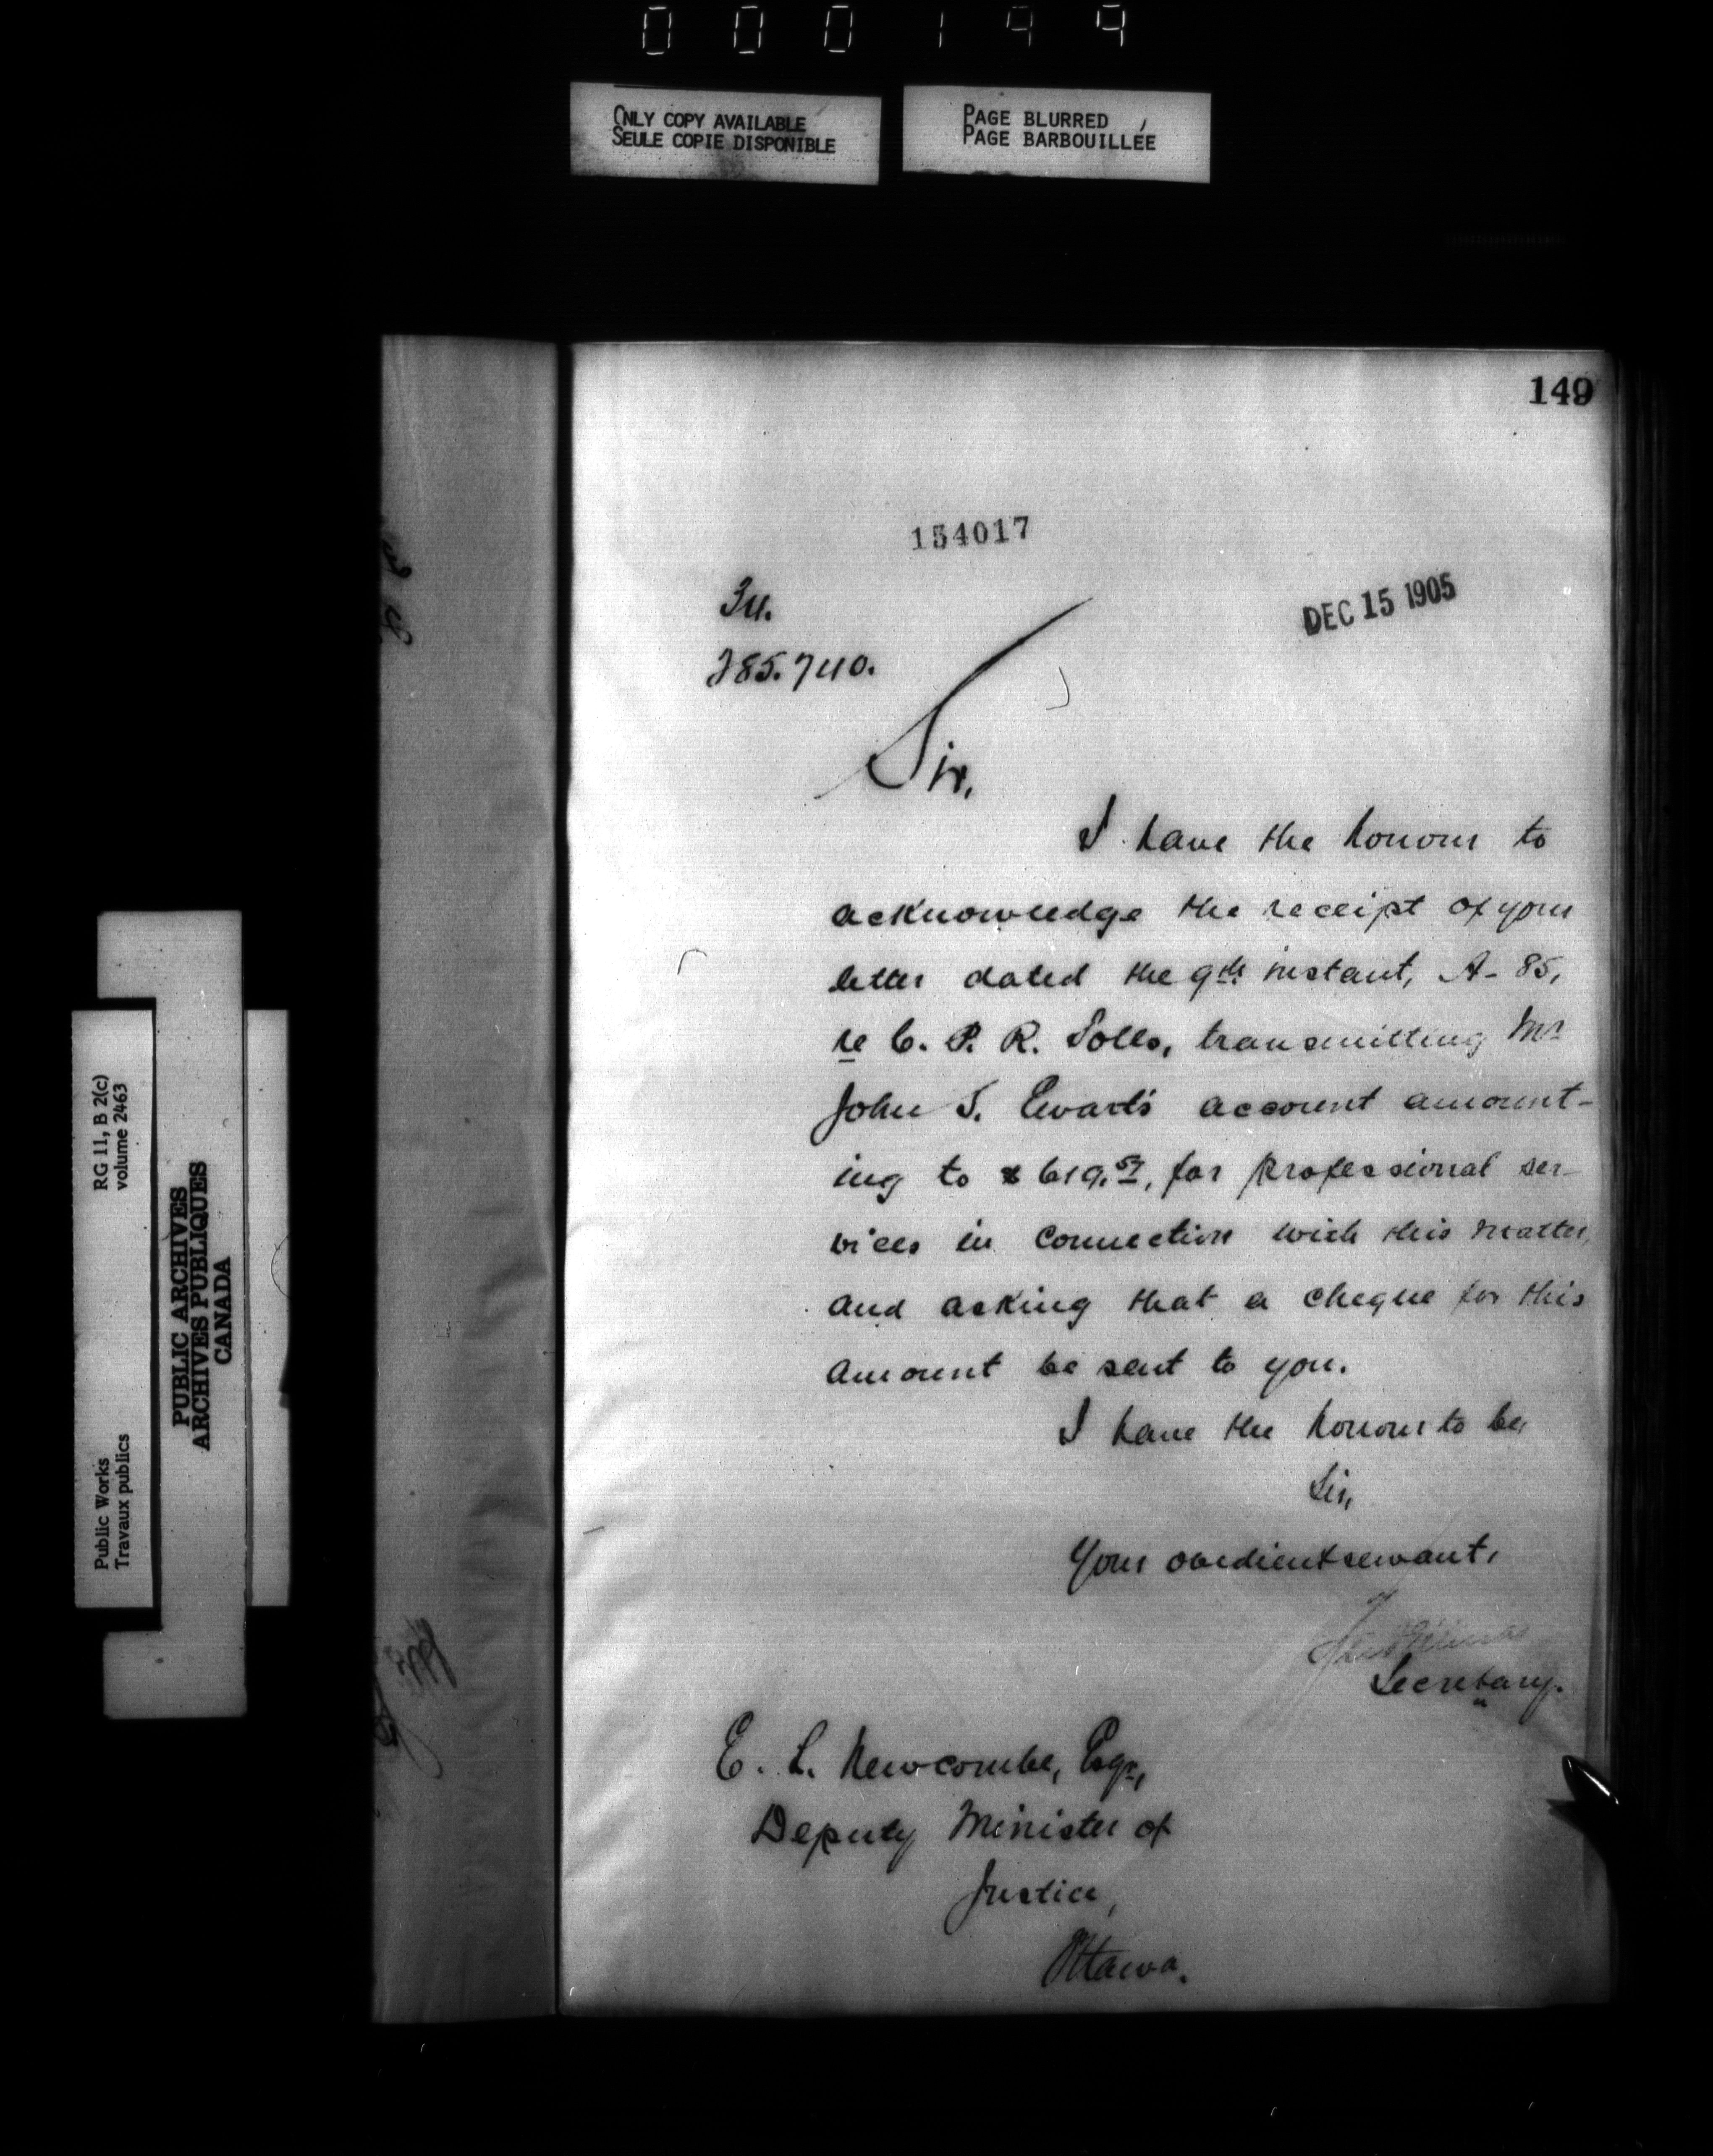 000199
ONLY COPY AVAILABLE
SEULE COPIE DISPONIBLE
PAGE BLURRED
PAGE BARBOUILLÉE
149
154017
DEC 15 1905
34.
285.740.
Sir,
I have the honour to
acknowledge the receipt of your
letter dated the 9th instant, A-85,
re C. P. R. Tolls, transmitting Mr
John S. Ewart's account amount-
ing to $619.57, for professional ser-
vices in connection with this matter,
and asking that a cheque for this
amount be sent to you.
I have the honour to be,
Sir,
Your obedient servant,
Secretary.
E. L. Newcombe, Esqr.,
Deputy Minister of
Justice,
Ottawa.
RG 11, B 2(c)
volume 2463
Public Works
Travaux publics
PUBLIC ARCHIVES
ARCHIVES PUBLIQUES
CANADA